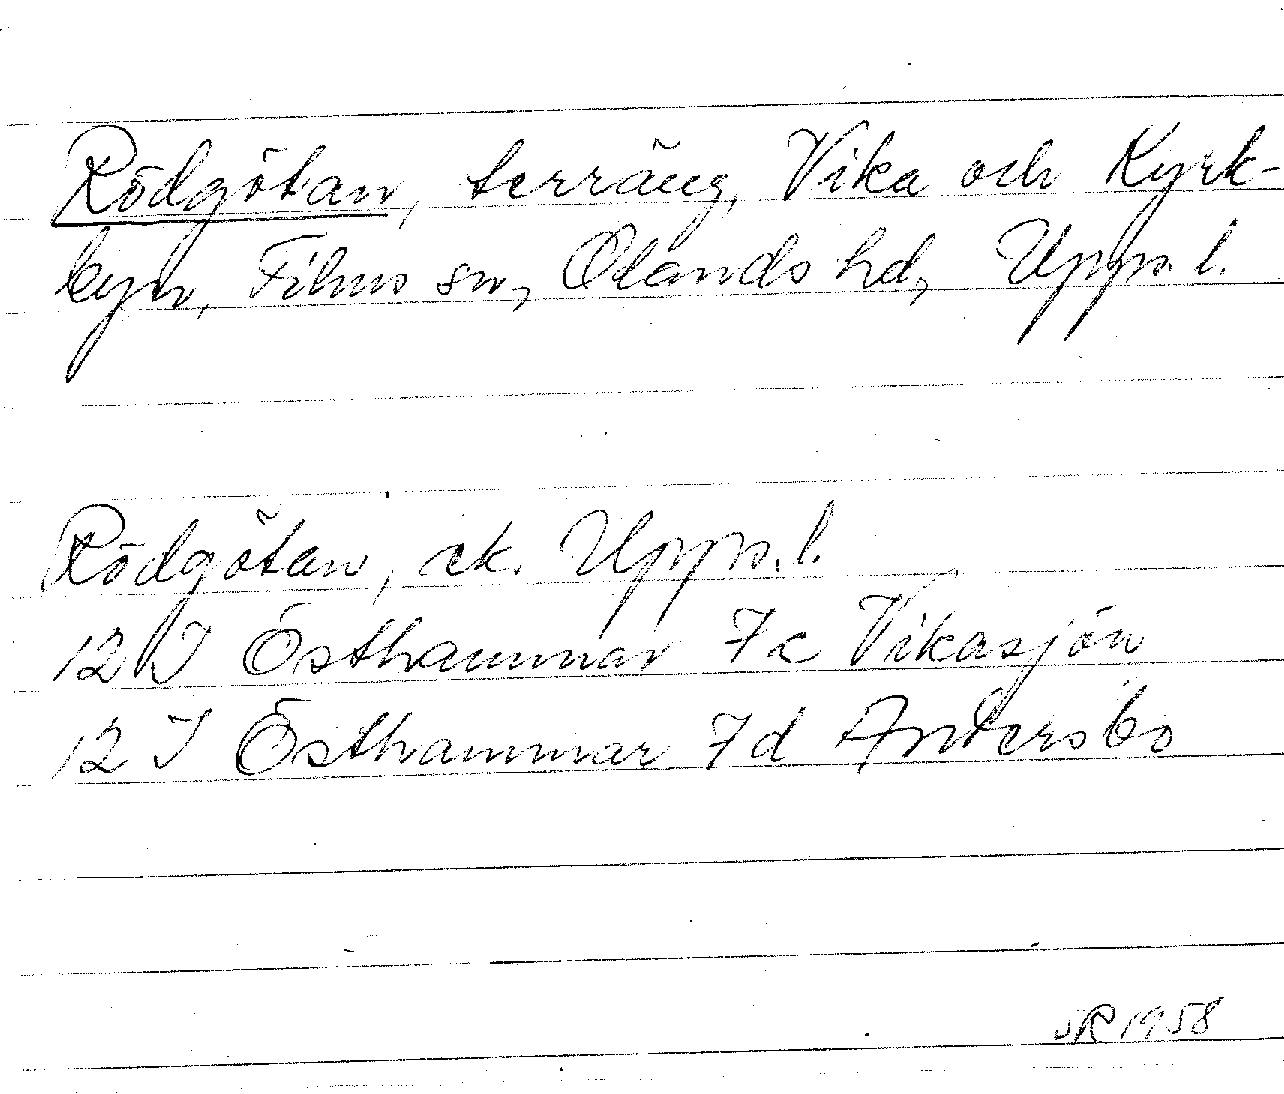 Rödgötan, terräng, Vika och Kyrk-
byn, Films sn, Olands hd, Upps. l.
Rödgötan, ek. Upps. l.
12 I Östhammar 7c Vikasjön
12 I Östhammar 7d Andersbo
SR 1958